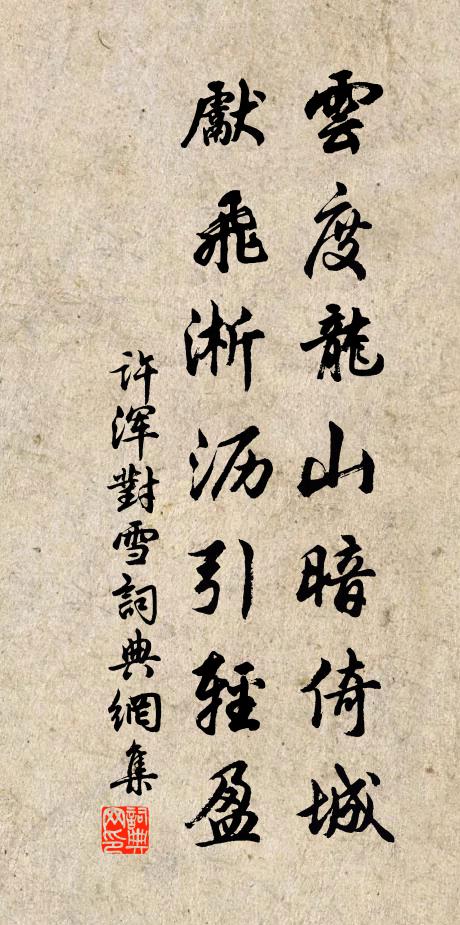 雲度龍山暗倚城
獻飛淅沥引輕盈
许浑對雪詞典網集
詞典网印